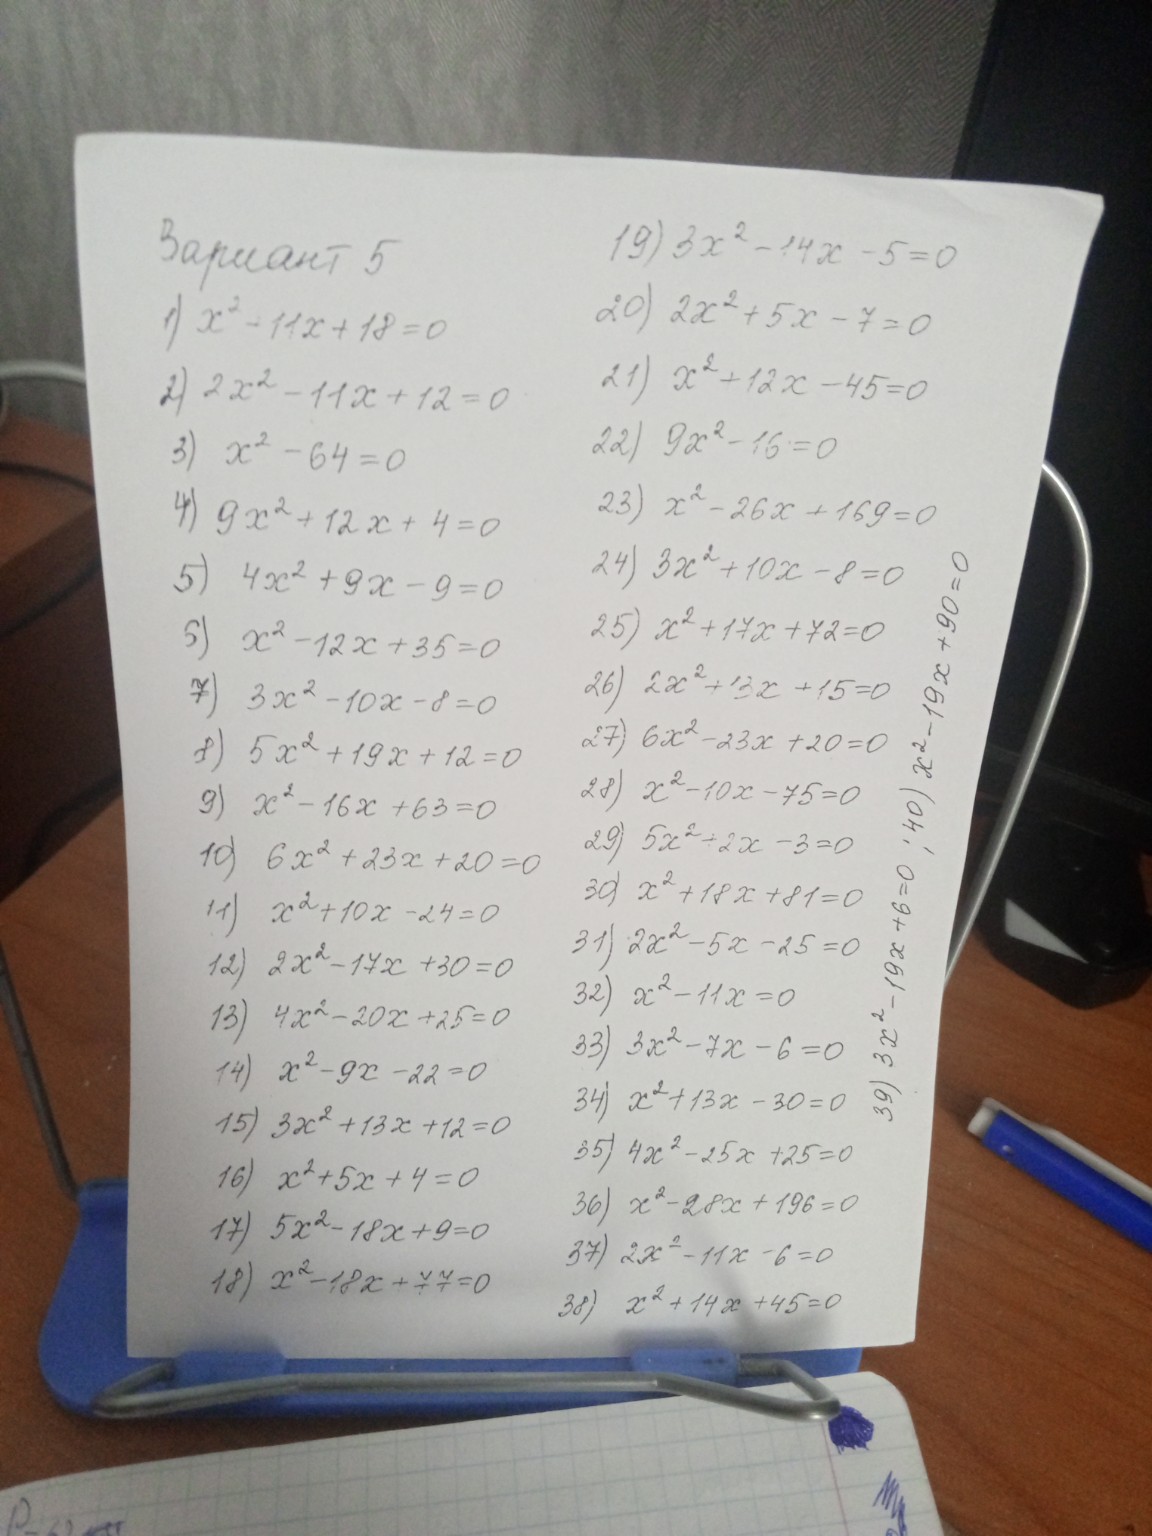 Вариант 5
1) x² - 11x + 18 = 0
2) 2x² - 11x + 12 = 0
3) x² - 64 = 0
4) 9x² + 12x + 4 = 0
5) 4x² + 9x - 9 = 0
6) x² - 12x + 35 = 0
7) 3x² - 10x - 8 = 0
8) 5x² + 19x + 12 = 0
9) x² - 16x + 63 = 0
10) 6x² + 23x + 20 = 0
11) x² + 10x - 24 = 0
12) 2x² - 17x + 30 = 0
13) 4x² - 20x + 25 = 0
14) x² - 9x - 22 = 0
15) 3x² + 13x + 12 = 0
16) x² + 5x + 4 = 0
17) 5x² - 18x + 9 = 0
18) x² - 18x + 77 = 0
19) 3x² - 14x - 5 = 0
20) 2x² + 5x - 7 = 0
21) x² + 12x - 45 = 0
22) 9x² - 16 = 0
23) x² - 26x + 169 = 0
24) 3x² + 10x - 8 = 0
25) x² + 17x + 72 = 0
26) 2x² + 13x + 15 = 0
27) 6x² - 23x + 20 = 0
28) x² - 10x - 75 = 0
29) 5x² + 2x - 3 = 0
30) x² + 18x + 81 = 0
31) 2x² - 5x - 25 = 0
32) x² - 11x = 0
33) 3x² - 7x - 6 = 0
34) x² + 13x - 30 = 0
35) 4x² - 25x + 25 = 0
36) x² - 28x + 196 = 0
37) 2x² - 11x - 6 = 0
38) x² + 14x + 45 = 0
39) 3x² - 19x + 6 = 0 ; 40) x² - 19x + 90 = 0